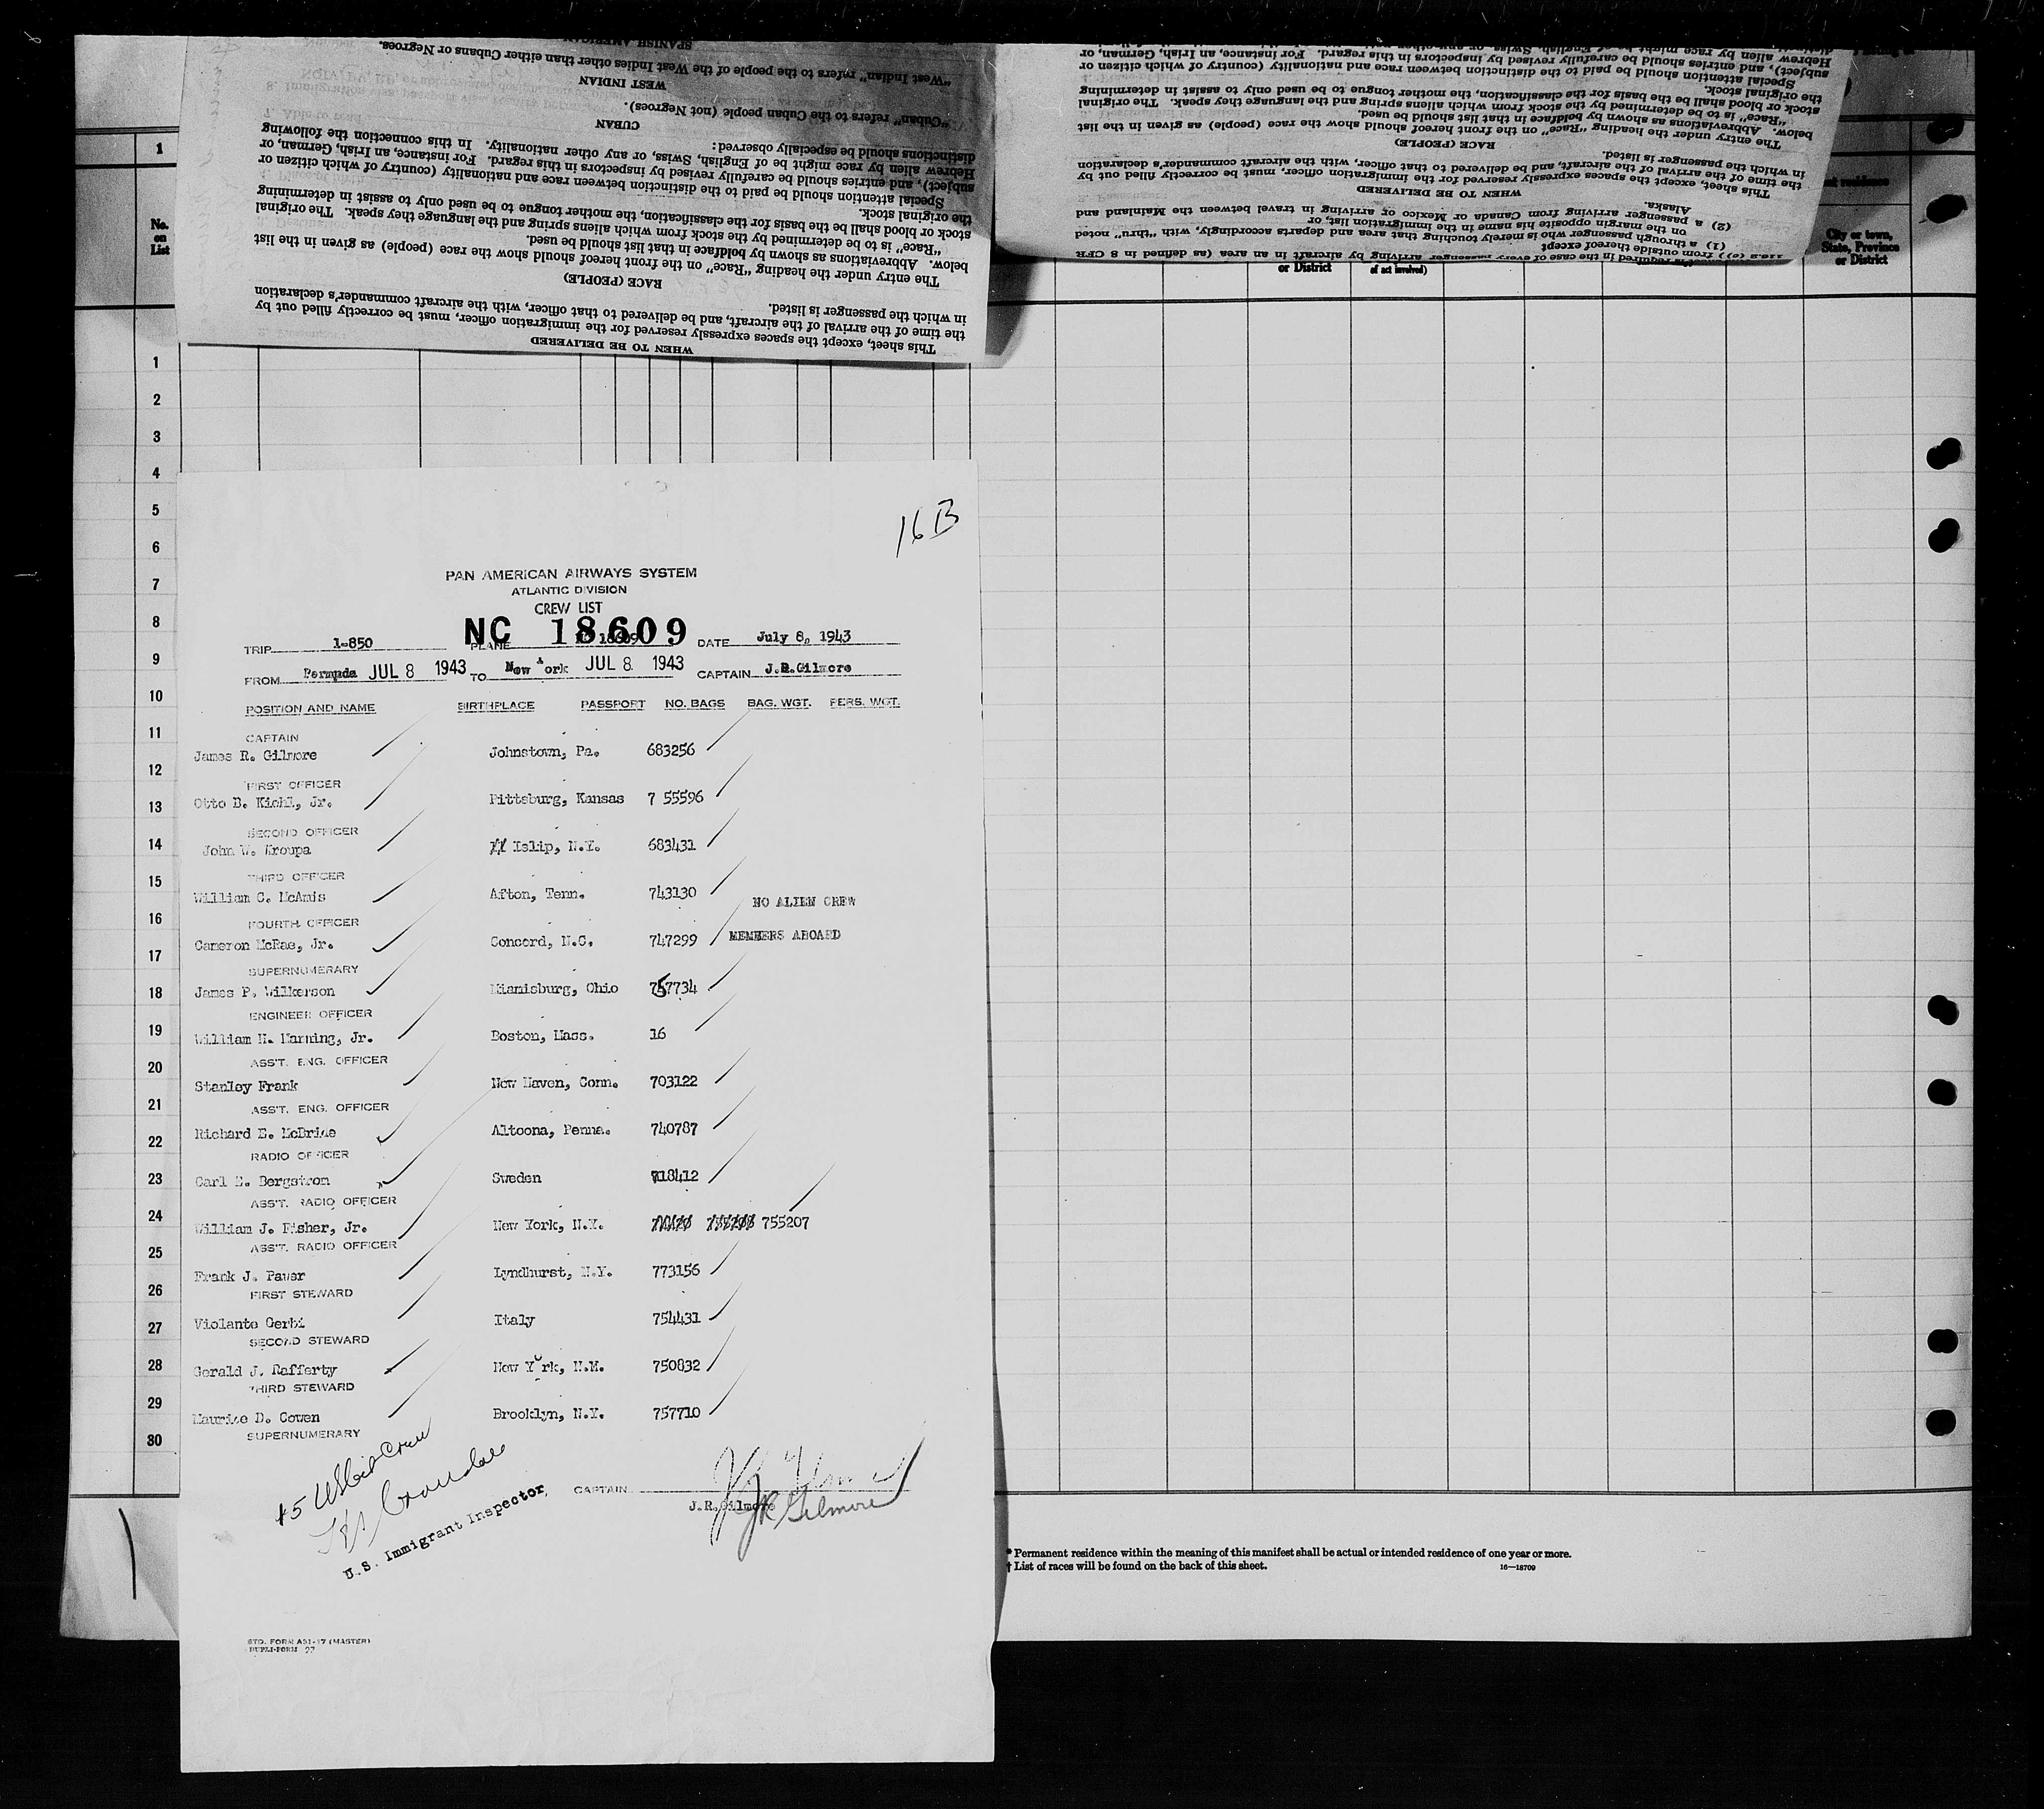 SPANISH AMERICAN
"West Indian" refers to the people of the West Indies other than either Cubans or Negroes.
WEST INDIAN
"Cuban" refers to the Cuban people (not Negroes).
CUBAN
distinctions should be especially observed:
Hebrew alien by race might be of English, Swiss, or any other nationality. In this connection the following
subject), and entries should be carefully revised by inspectors in this regard. For instance, an Irish, German, or
Special attention should be paid to the distinction between race and nationality (country of which citizen or
the original stock.
stock or blood shall be the basis for the classification, the mother tongue to be used only to assist in determining
"Race" is to be determined by the stock from which aliens spring and the language they speak. The original
below. Abbreviations as shown by boldface in that list should be used.
The entry under the heading "Race" on the front hereof should show the race (people) as given in the list
RACE (PEOPLE)
in which the passenger is listed.
the time of the arrival of the aircraft, and be delivered to that officer, with the aircraft commander's declaration
This sheet, except the spaces expressly reserved for the immigration officer, must be correctly filled out by
WHEN TO BE DELIVERED
Hebrew alien by race might be of English, Swiss, or any other nationality.
subject), and entries should be carefully revised by inspectors in this regard. For instance, an Irish, German, or
Special attention should be paid to the distinction between race and nationality (country of which citizen or
the original stock.
stock or blood shall be the basis for the classification, the mother tongue to be used only to assist in determining
"Race" is to be determined by the stock from which aliens spring and the language they speak. The original
below. Abbreviations as shown by boldface in that list should be used.
The entry under the heading "Race" on the front hereof should show the race (people) as given in the list
RACE (PEOPLE)
in which the passenger is listed.
the time of the arrival of the aircraft, and be delivered to that officer, with the aircraft commander's declaration
This sheet, except the spaces expressly reserved for the immigration officer, must be correctly filled out by
WHEN TO BE DELIVERED
Alaska.
(2) a passenger arriving from Canada or Mexico or arriving in travel between the Mainland and
on the margin opposite his name in the immigration list, or
(1) a through passenger who is merely touching that area and departs accordingly, with "thru" noted
from outside thereof except
required in the case of every passenger arriving by aircraft in an area (as defined in 8 CFR
1
No. on List
or District
of act involved)
City or town, State, Province or District
1
2
3
4
5
6
7
8
9
10
11
12
13
14
15
16
17
18
19
20
21
22
23
24
25
26
27
28
29
30
16 B
PAN AMERICAN AIRWAYS SYSTEM
ATLANTIC DIVISION
CREW LIST
TRIP 1-850 PLANE NC 18609 DATE July 8, 1943
FROM Bermuda JUL 8 1943 TO New York JUL 8 1943 CAPTAIN J.R.Gilmore
POSITION AND NAME BIRTHPLACE PASSPORT NO. BAGS BAG. WGT. PERS. WGT.
CAPTAIN
James R. Gilmore Johnstown, Pa. 683256
FIRST OFFICER
Otto B. Kiehl, Jr. Pittsburg, Kansas 7 55596
SECOND OFFICER
John W. Kroupa Islip, N.Y. 683431
THIRD OFFICER
William C. McAmis Afton, Tenn. 743130
NO ALIEN CREW
FOURTH OFFICER
Cameron McRae, Jr. Concord, N.C. 747299
MEMBERS ABOARD
SUPERNUMERARY
James P. Wilkerson Miamisburg, Ohio 757734
ENGINEER OFFICER
William H. Manning, Jr. Boston, Mass. 16
ASS'T. ENG. OFFICER
Stanley Frank New Haven, Conn. 703122
ASS'T. ENG. OFFICER
Richard E. McBride Altoona, Penna. 740787
RADIO OFFICER
Carl E. Bergstrom Sweden 718412
ASS'T. RADIO OFFICER
William J. Fisher, Jr. New York, N.Y. 755207
ASS'T. RADIO OFFICER
Frank J. Pauer Lyndhurst, N.Y. 773156
FIRST STEWARD
Violante Gerbi Italy 754431
SECOND STEWARD
Gerald J. Rafferty New York, N.M. 750832
THIRD STEWARD
Maurice D. Cowen Brooklyn, N.Y. 757710
SUPERNUMERARY
U.S. Immigrant Inspector,
CAPTAIN
J.R.Gilmore
JR Gilmore
STD. FORM A31-17 (MASTER)
DUPLI-FORM 97
* Permanent residence within the meaning of this manifest shall be actual or intended residence of one year or more.
† List of races will be found on the back of this sheet.
16—18709